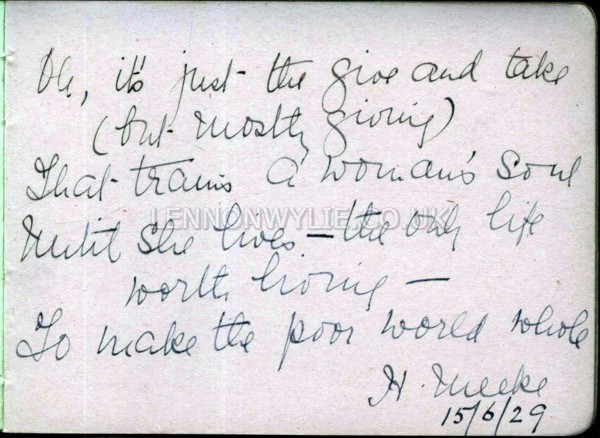 Oh, it's just the give and take
(but mostly giving)
That trains a woman's soul
LENNONWYLIE.CO.UK
Until she lives — the only life
worth living —
To make the poor world whole
H. Meeke
15/6/29